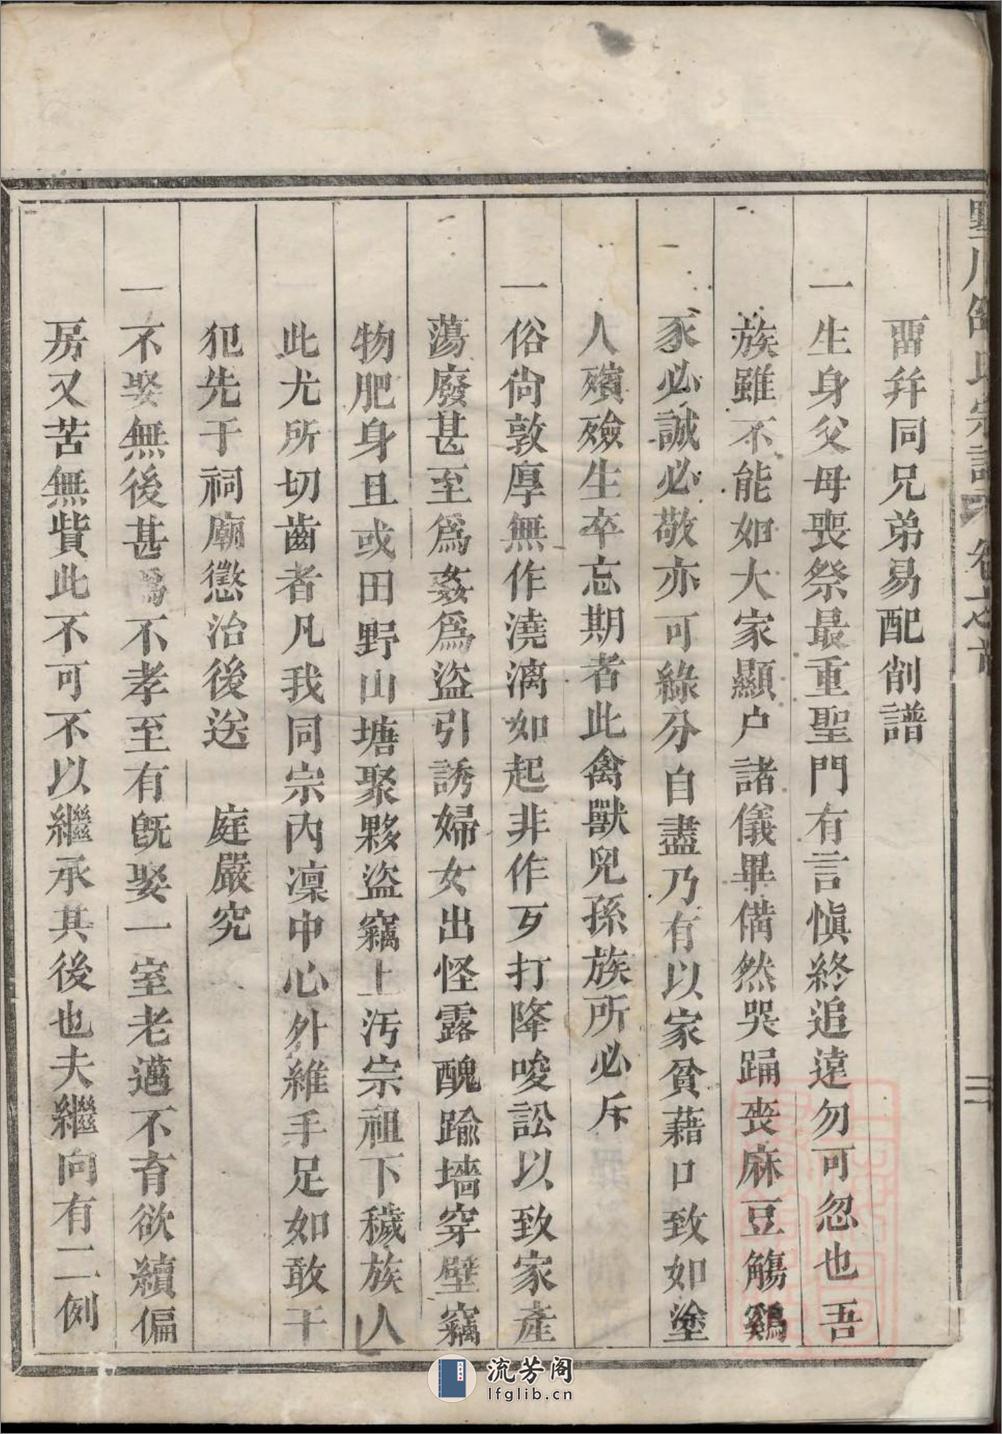 畱幷同兄弟易配削譜
一生身父母喪祭最重聖門有言愼終追遠勿可忽也吾
族雖不能如大家顯户諸儀畢備然哭踊喪麻豆觴鷄
豕必誠必敬亦可緣分自盡乃有以家貧藉口致如塗
人殯殮生卒忘期者此禽獸兒孫族所必斥
一俗尙敦厚無作澆漓如起非作歹打降唆訟以致家產
蕩廢甚至爲姦爲盜引誘婦女出怪露醜踰墻穿壁竊
物肥身且或田野山塘聚夥盜竊上汚宗祖下穢族人
此尤所切齒者凡我同宗內凜中心外維手足如敢干
犯先于祠廟懲治後送 庭嚴究
一不娶無後甚爲不孝至有旣娶一室老邁不育欲續偏
房又苦無貲此不可不以繼承其後也夫繼向有二例
氏宗譜 卷之首
流芳阁
lfglib.cn